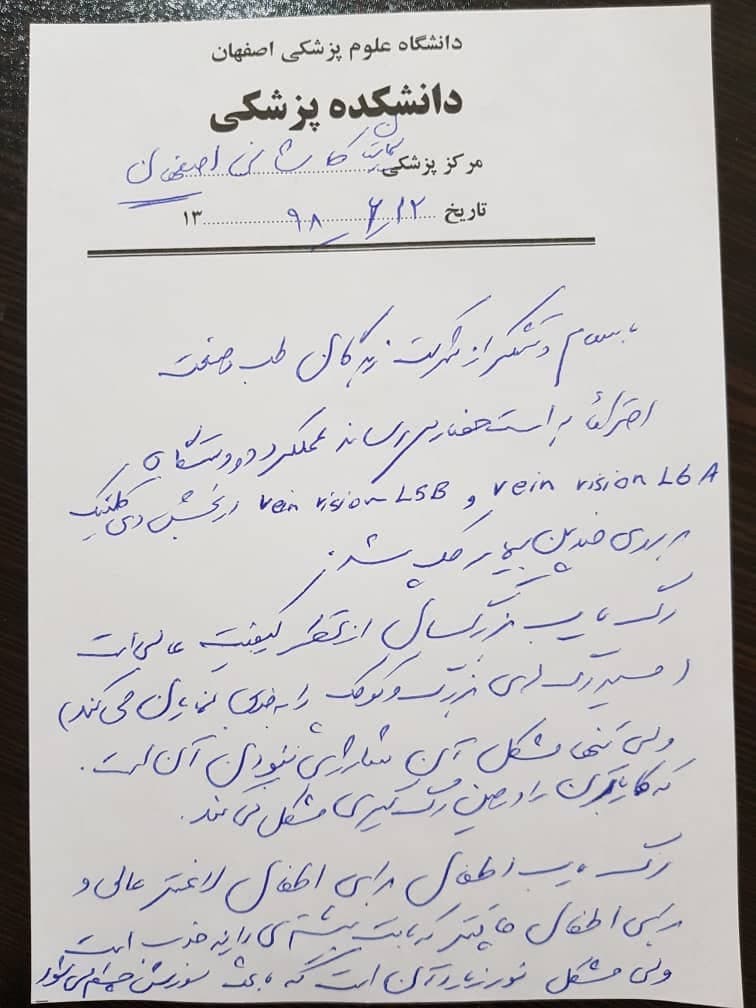 دانشگاه علوم پزشکی اصفهان
دانشکده پزشکی
مرکز پزشکی کاشانی اصفهان
تاریخ ۹۸/۶/۱۲ ۱۳
باسلام و تشکر از شرکت زندگانی طب و صنعت
احتراماً به استحضار می رساند عملکرد دو دستگاه
vein vision L6A و vein vision L5B در بخش دی کلینیک
بر روی چندین بیمار چک شد
رگ یاب بزرگسال از نظر کیفیت عالی است
(مسیر رگ های بزرگ و کوچک را به خوبی نمایان می کند)
ولی تنها مشکل آن شارژی نبودن آن است.
که کاربری را در حین رگ گیری مشکل می کند.
رگ یاب اطفال برای اطفال لاغرتر عالی و
برای اطفال چاقتر که بافت بیشتری دارند خوب است
ولی مشکل نور زیاد آن است که باعث سوزش چشم می شود